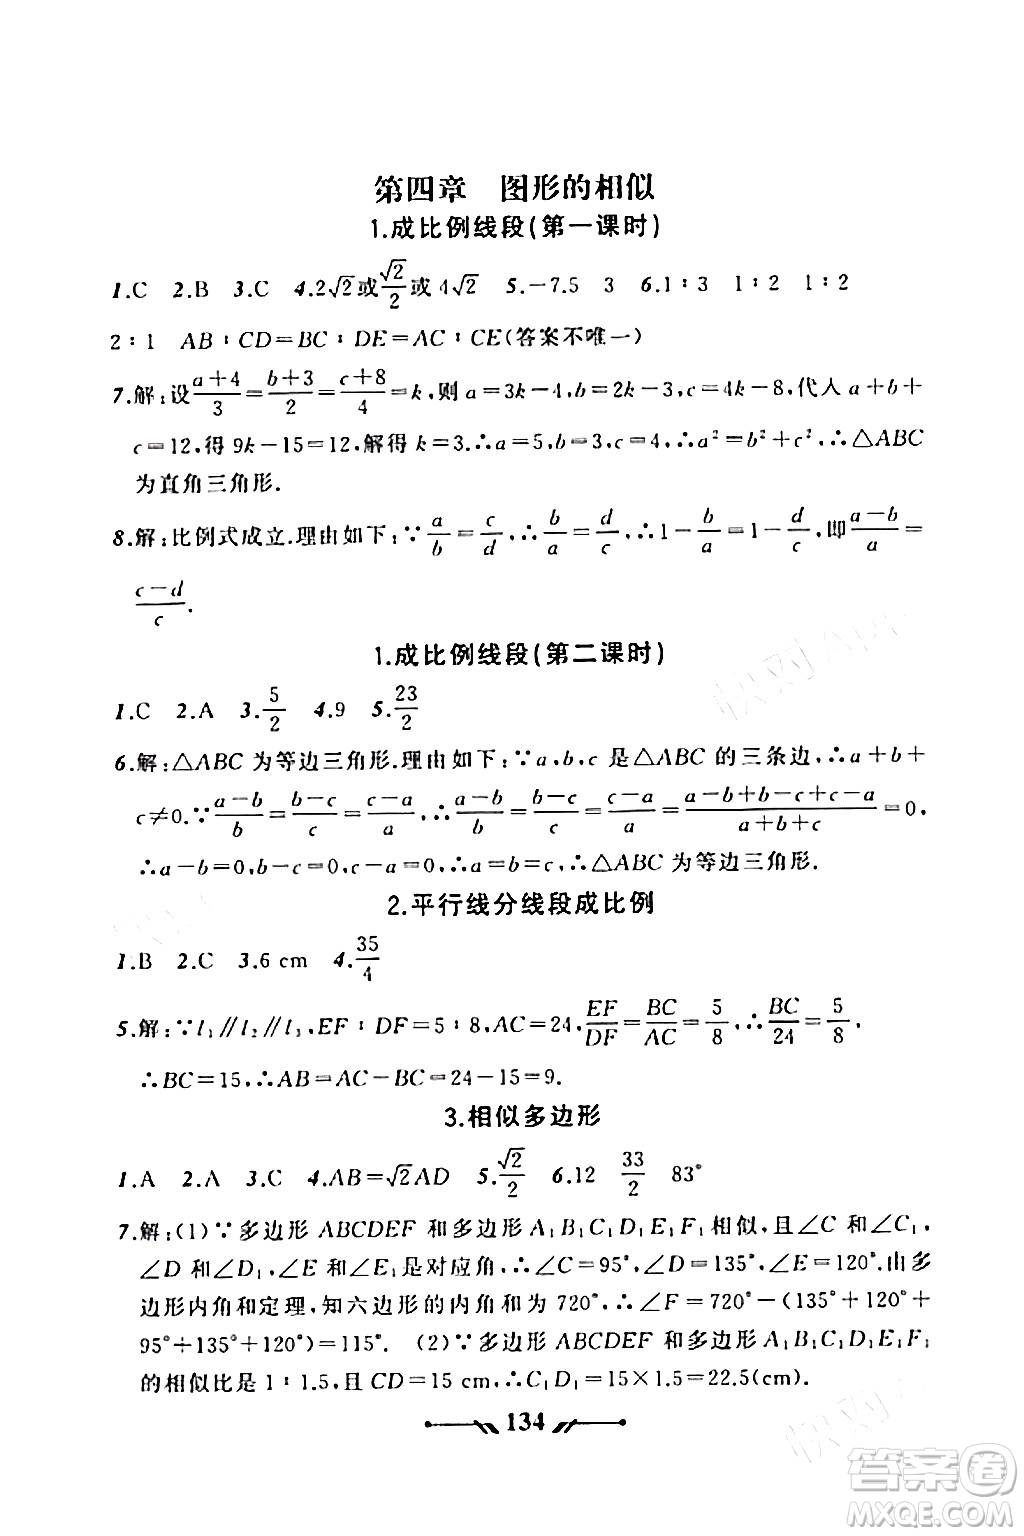 第四章　图形的相似
1.成比例线段(第一课时)
1.C 2.B 3.C 4.2√2或√2/2或4√2 5.－7.5 3 6.1∶3 1∶2 1∶2
2∶1 AB∶CD＝BC∶DE＝AC∶CE(答案不唯一)
7.解:设(a＋4)/3＝(b＋3)/2＝(c＋8)/4＝k,则 a＝3k－4,b＝2k－3,c＝4k－8,代人 a＋b＋
c＝12,得 9k－15＝12,解得 k＝3.∴a＝5,b＝3,c＝4,∴a²＝b²＋c²,∴△ABC
为直角三角形.
8.解:比例式成立.理由如下:∵a/b＝c/d,∴b/a＝d/c,∴1－b/a＝1－d/c,即(a－b)/a＝
(c－d)/c.
1.成比例线段(第二课时)
1.C 2.A 3.5/2 4.9 5.23/2
6.解:△ABC 为等边三角形.理由如下:∵a,b,c 是△ABC 的三条边,∴a＋b＋
c≠0.∵(a－b)/b＝(b－c)/c＝(c－a)/a,∴(a－b)/b＝(b－c)/c＝(c－a)/a＝(a－b＋b－c＋c－a)/(a＋b＋c)＝0,
∴a－b＝0,b－c＝0,c－a＝0,∴a＝b＝c,∴△ABC 为等边三角形.
2.平行线分线段成比例
1.B 2.C 3.6 cm 4.35/4
5.解:∵l₁∥l₂∥l₃,EF∶DF＝5∶8,AC＝24,EF/DF＝BC/AC＝5/8,∴BC/24＝5/8,
∴BC＝15,∴AB＝AC－BC＝24－15＝9.
3.相似多边形
1.A 2.A 3.C 4.AB＝√2AD 5.√2/2 6.12 33/2 83°
7.解:(1)∵多边形 ABCDEF 和多边形 A₁B₁C₁D₁E₁F₁相似,且∠C 和∠C₁,
∠D 和∠D₁,∠E 和∠E₁是对应角,∴∠C＝95°,∠D＝135°,∠E＝120°.由多
边形内角和定理,知六边形的内角和为 720°,∴∠F＝720°－(135°＋120°＋
95°＋135°＋120°)＝115°. (2)∵多边形 ABCDEF 和多边形 A₁B₁C₁D₁E₁F₁
的相似比是 1∶1.5,且 CD＝15 cm,∴C₁D₁＝15×1.5＝22.5(cm).
134
答案卷
MXQE.COM